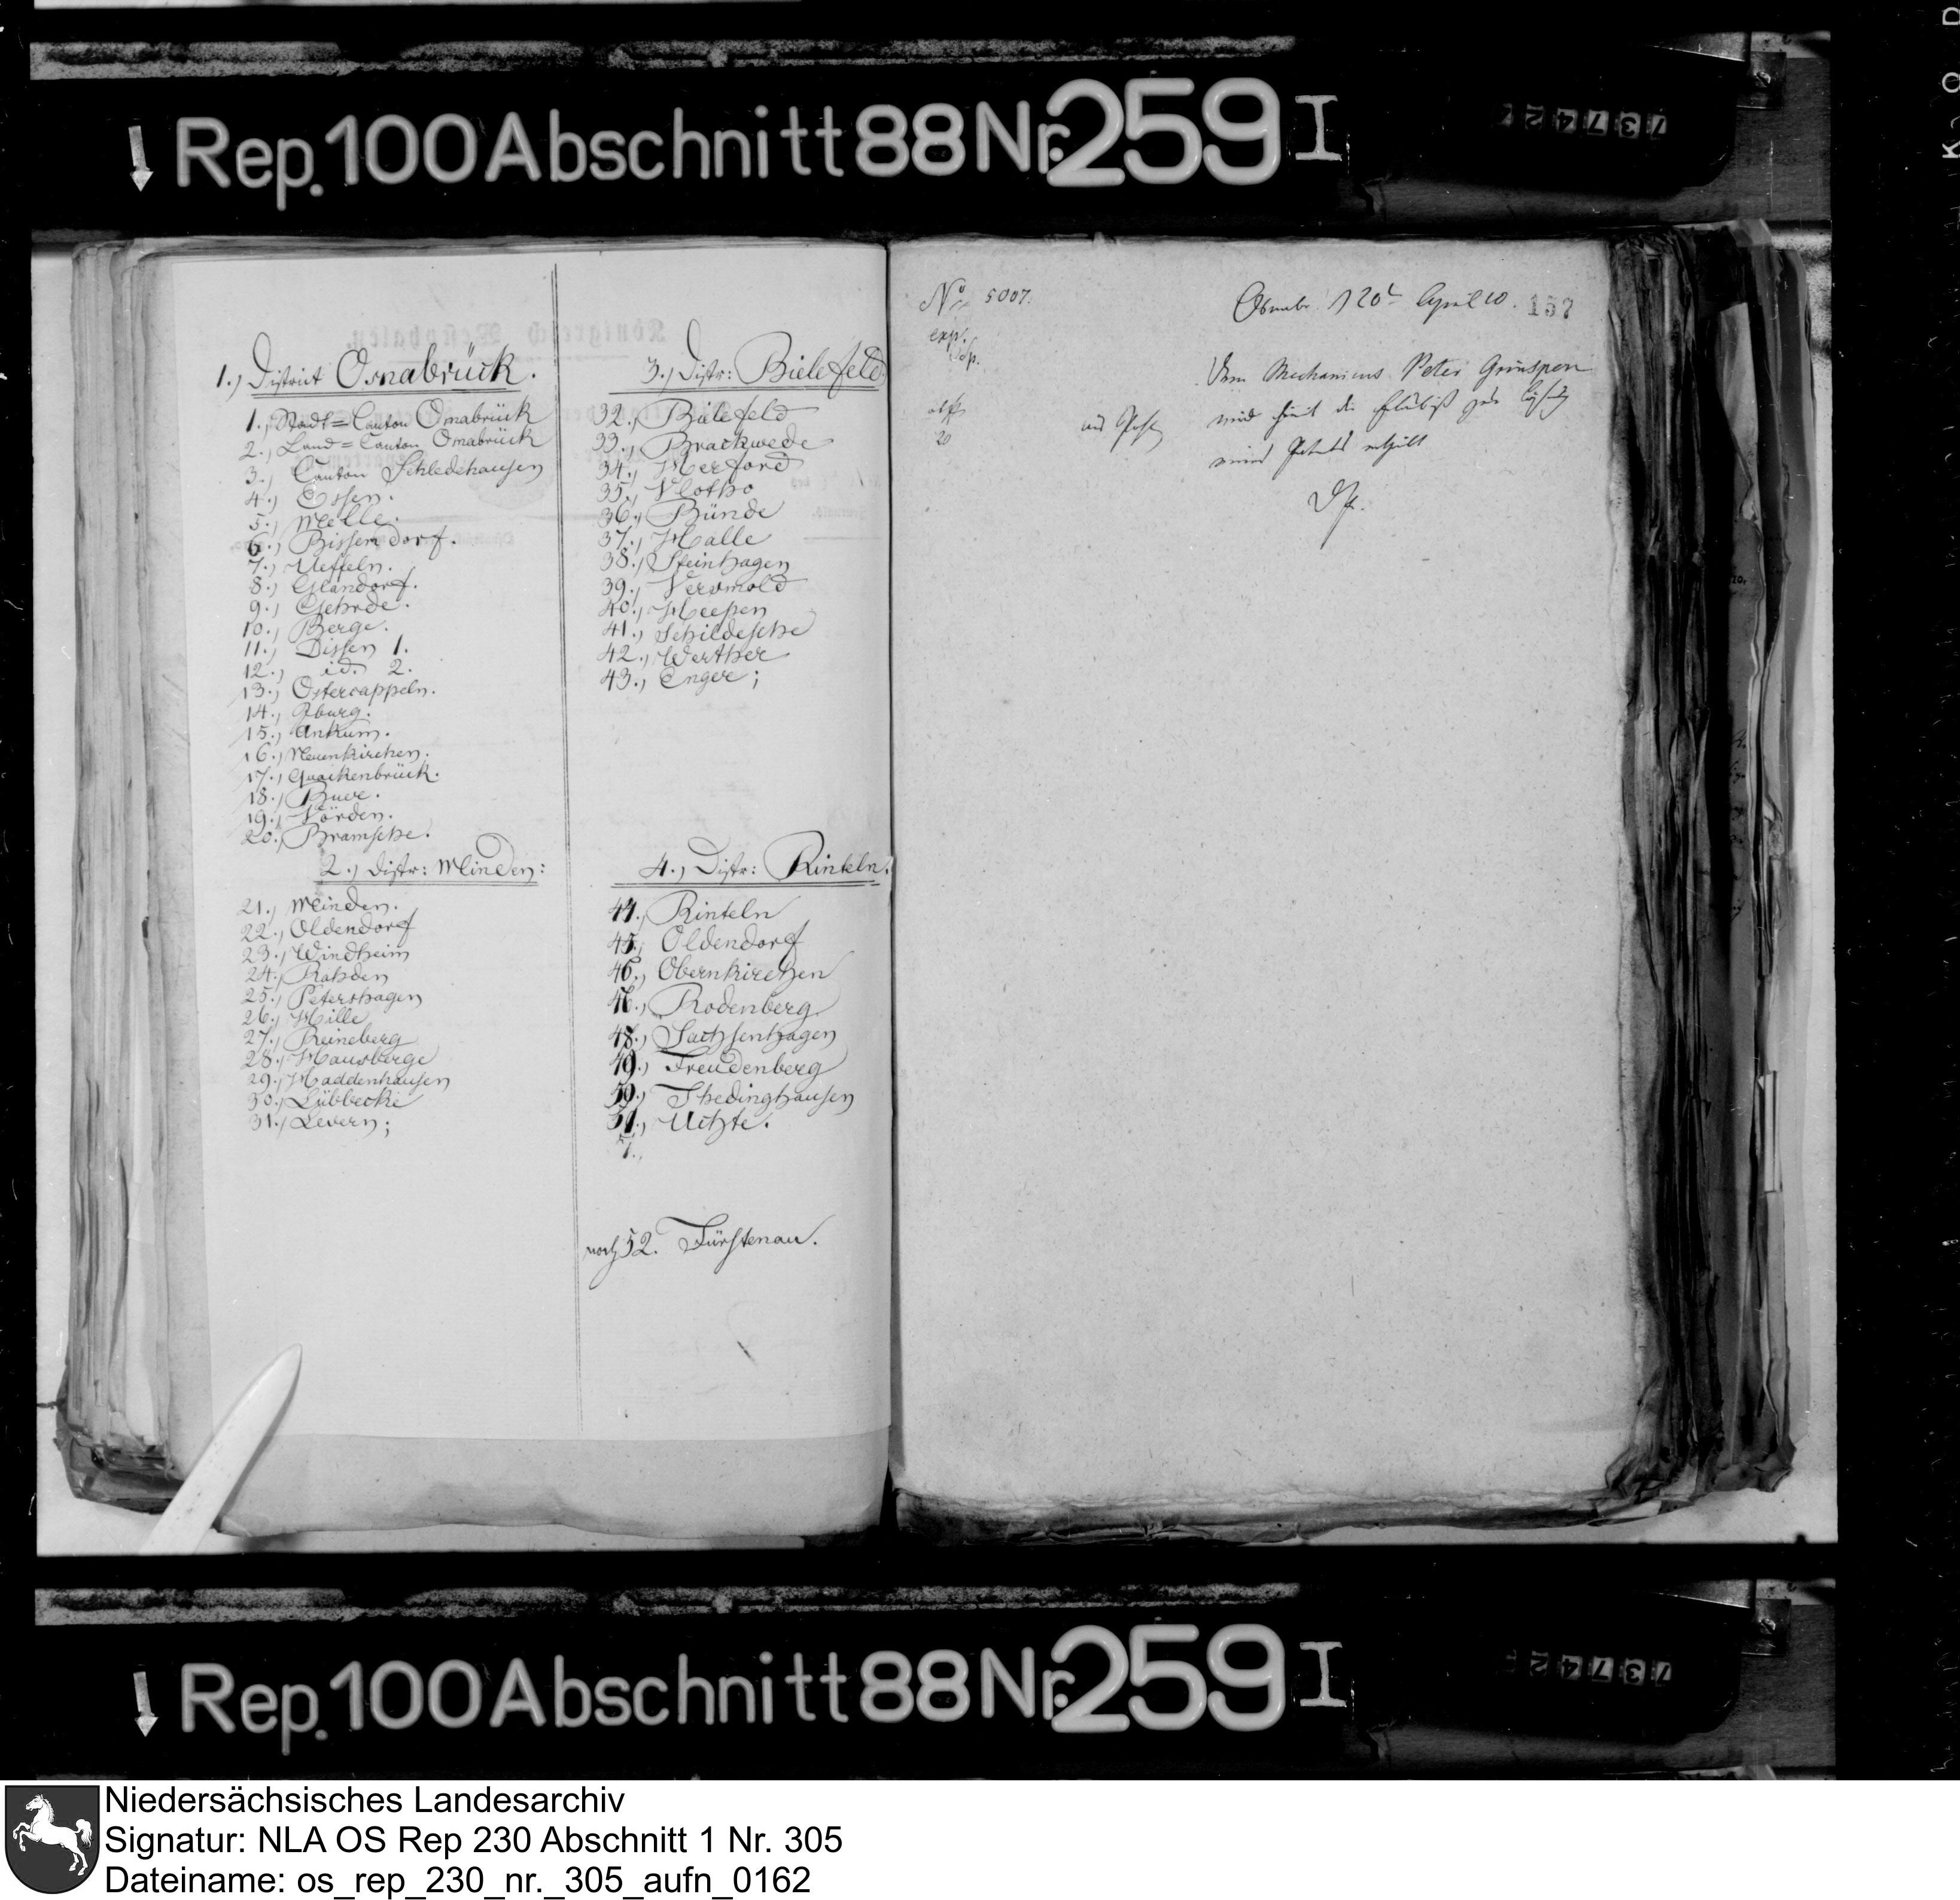 Rep. 100 Abschnitt 88 Nr. 259 I
1., District Osnabrück.
1., Stadt=Canton Osnabrück
2., Land=Canton Osnabrück
3., Canton Schledehausen
4., Essen.
5., Melle.
6., Bissendorf.
7., Ueffeln.
8., Glandorf.
9., Gehrde.
10., Berge.
11., Dissen 1.
12., id. 2.
13., Ostercappeln.
14., Iburg.
15., Ankum.
16., Neuenkirchen.
17., Quackenbrück.
18., Buer.
19., Vörden.
20., Bramsche.
2., Distr: Minden:
21., Minden.
22., Oldendorf
23., Windheim
24., Rahden
25., Petershagen
26., Hille
27., Reineberg
28., Hausberge
29., Haddenhausen
30., Lübbecke
31., Levern;
3., Distr: Bielefeld
32., Bielefeld
33., Brackwede
34., Herford
35., Vlotho
36., Bünde
37., Halle
38., Steinhagen
39., Versmold
40., Heepen
41., Schildesche
42., Werther
43., Enger;
4., Distr: Rinteln.
44., Rinteln
45., Oldendorf
46., Obernkirchen
47., Rodenberg
48., Sachsenhagen
49., Freudenberg
50., Thedinghausen
51., Uchte.
noch 52. Fürstenau.
No 5007.
exp.
20
Osnabr. 120t April 10.
157
Dem Mechanicus Peter Grünspon
wird hiemit die Erlaubniß zur
seines Patents ertheilt
Rep. 100 Abschnitt 88 Nr. 259 I
Niedersächsisches Landesarchiv
Signatur: NLA OS Rep 230 Abschnitt 1 Nr. 305
Dateiname: os_rep_230_nr._305_aufn_0162